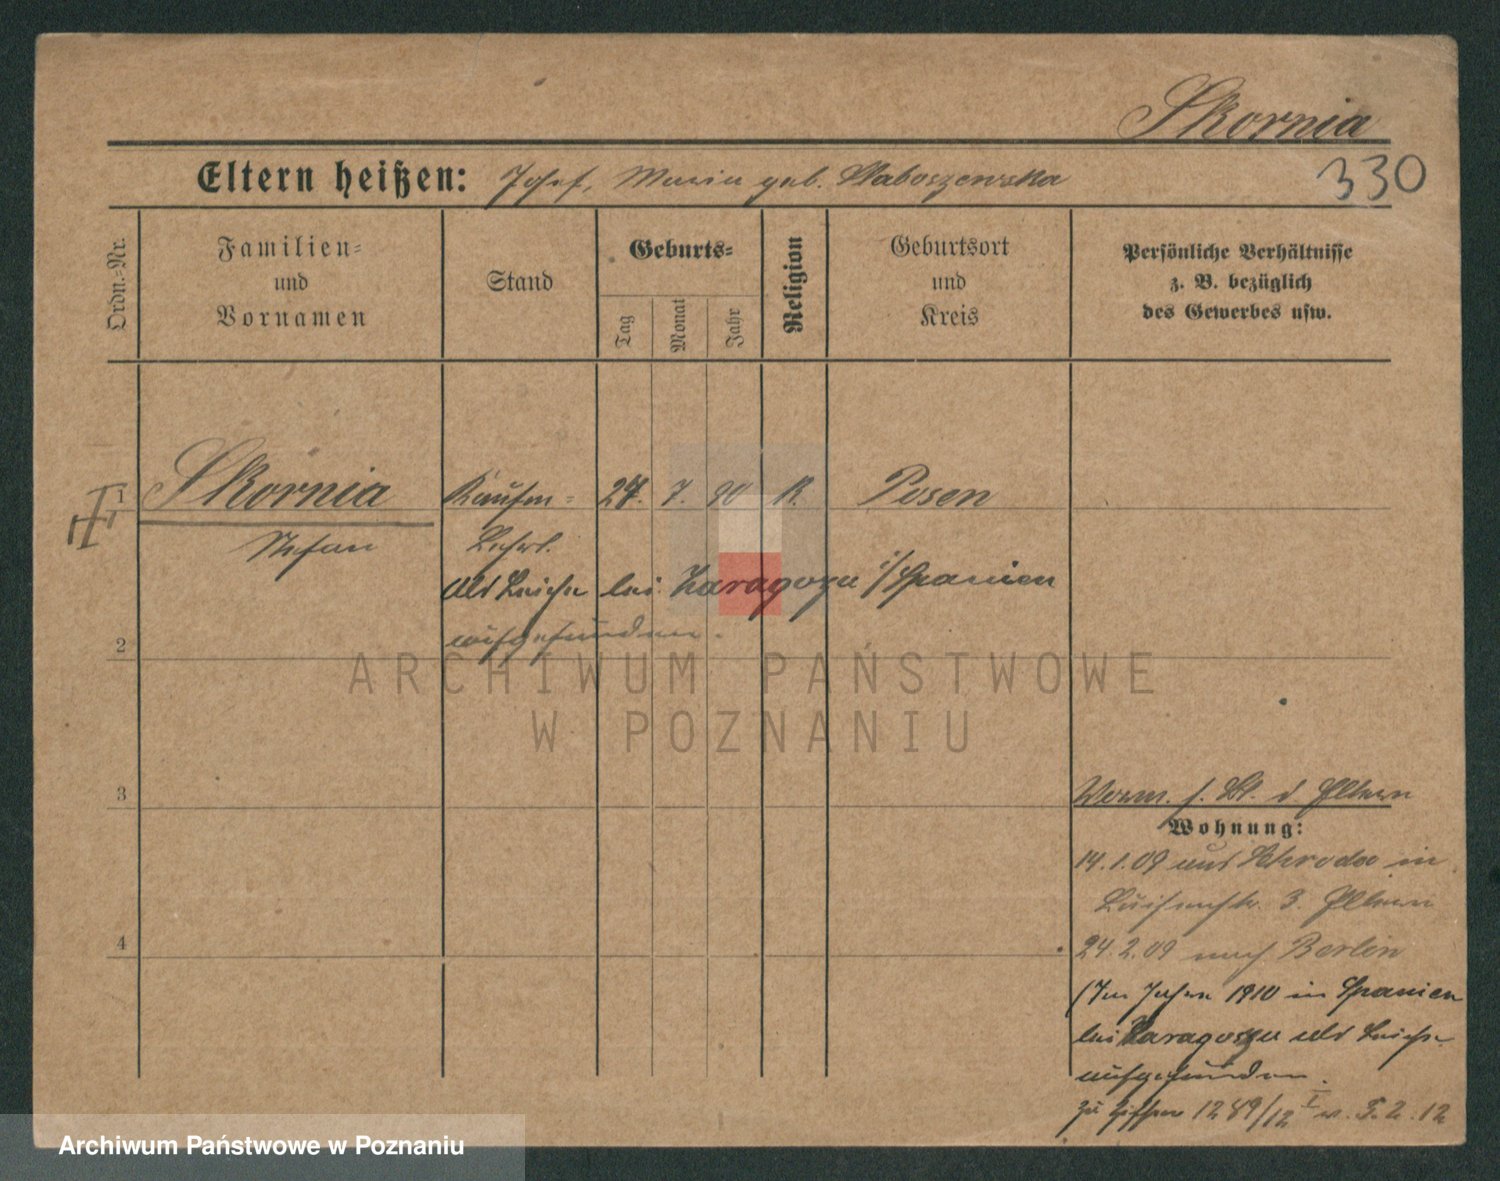 Skornia
Eltern heißen: Josef, Maria geb. Slaboszewska
330
Ordn.=Nr.
Familien=
und
Vornamen
Stand
Geburts=
Tag
Monat
Jahr
Religion
Geburtsort
und
Kreis
Persönliche Verhältnisse
z. B. bezüglich
des Gewerbes usw.
1 Skornia Kaufm= 27. 7. 90 K. Posen
Stefan Lehrl.
Als Leiche bei Zaragoza i/Spanien
aufgefunden.
2
ARCHIWUM PAŃSTWOWE
W POZNANIU
3
Verm. s. Bl. d Eltern
Wohnung:
14.1.09 aus Schroda in
Luisenstr. 3. Eltern
4
24.2.09 nach Berlin
(Im Jahre 1910 in Spanien
bei Zaragossa als Leiche
aufgefunden.
zu 1289/12 I v. 5.2.12
Archiwum Państwowe w Poznaniu